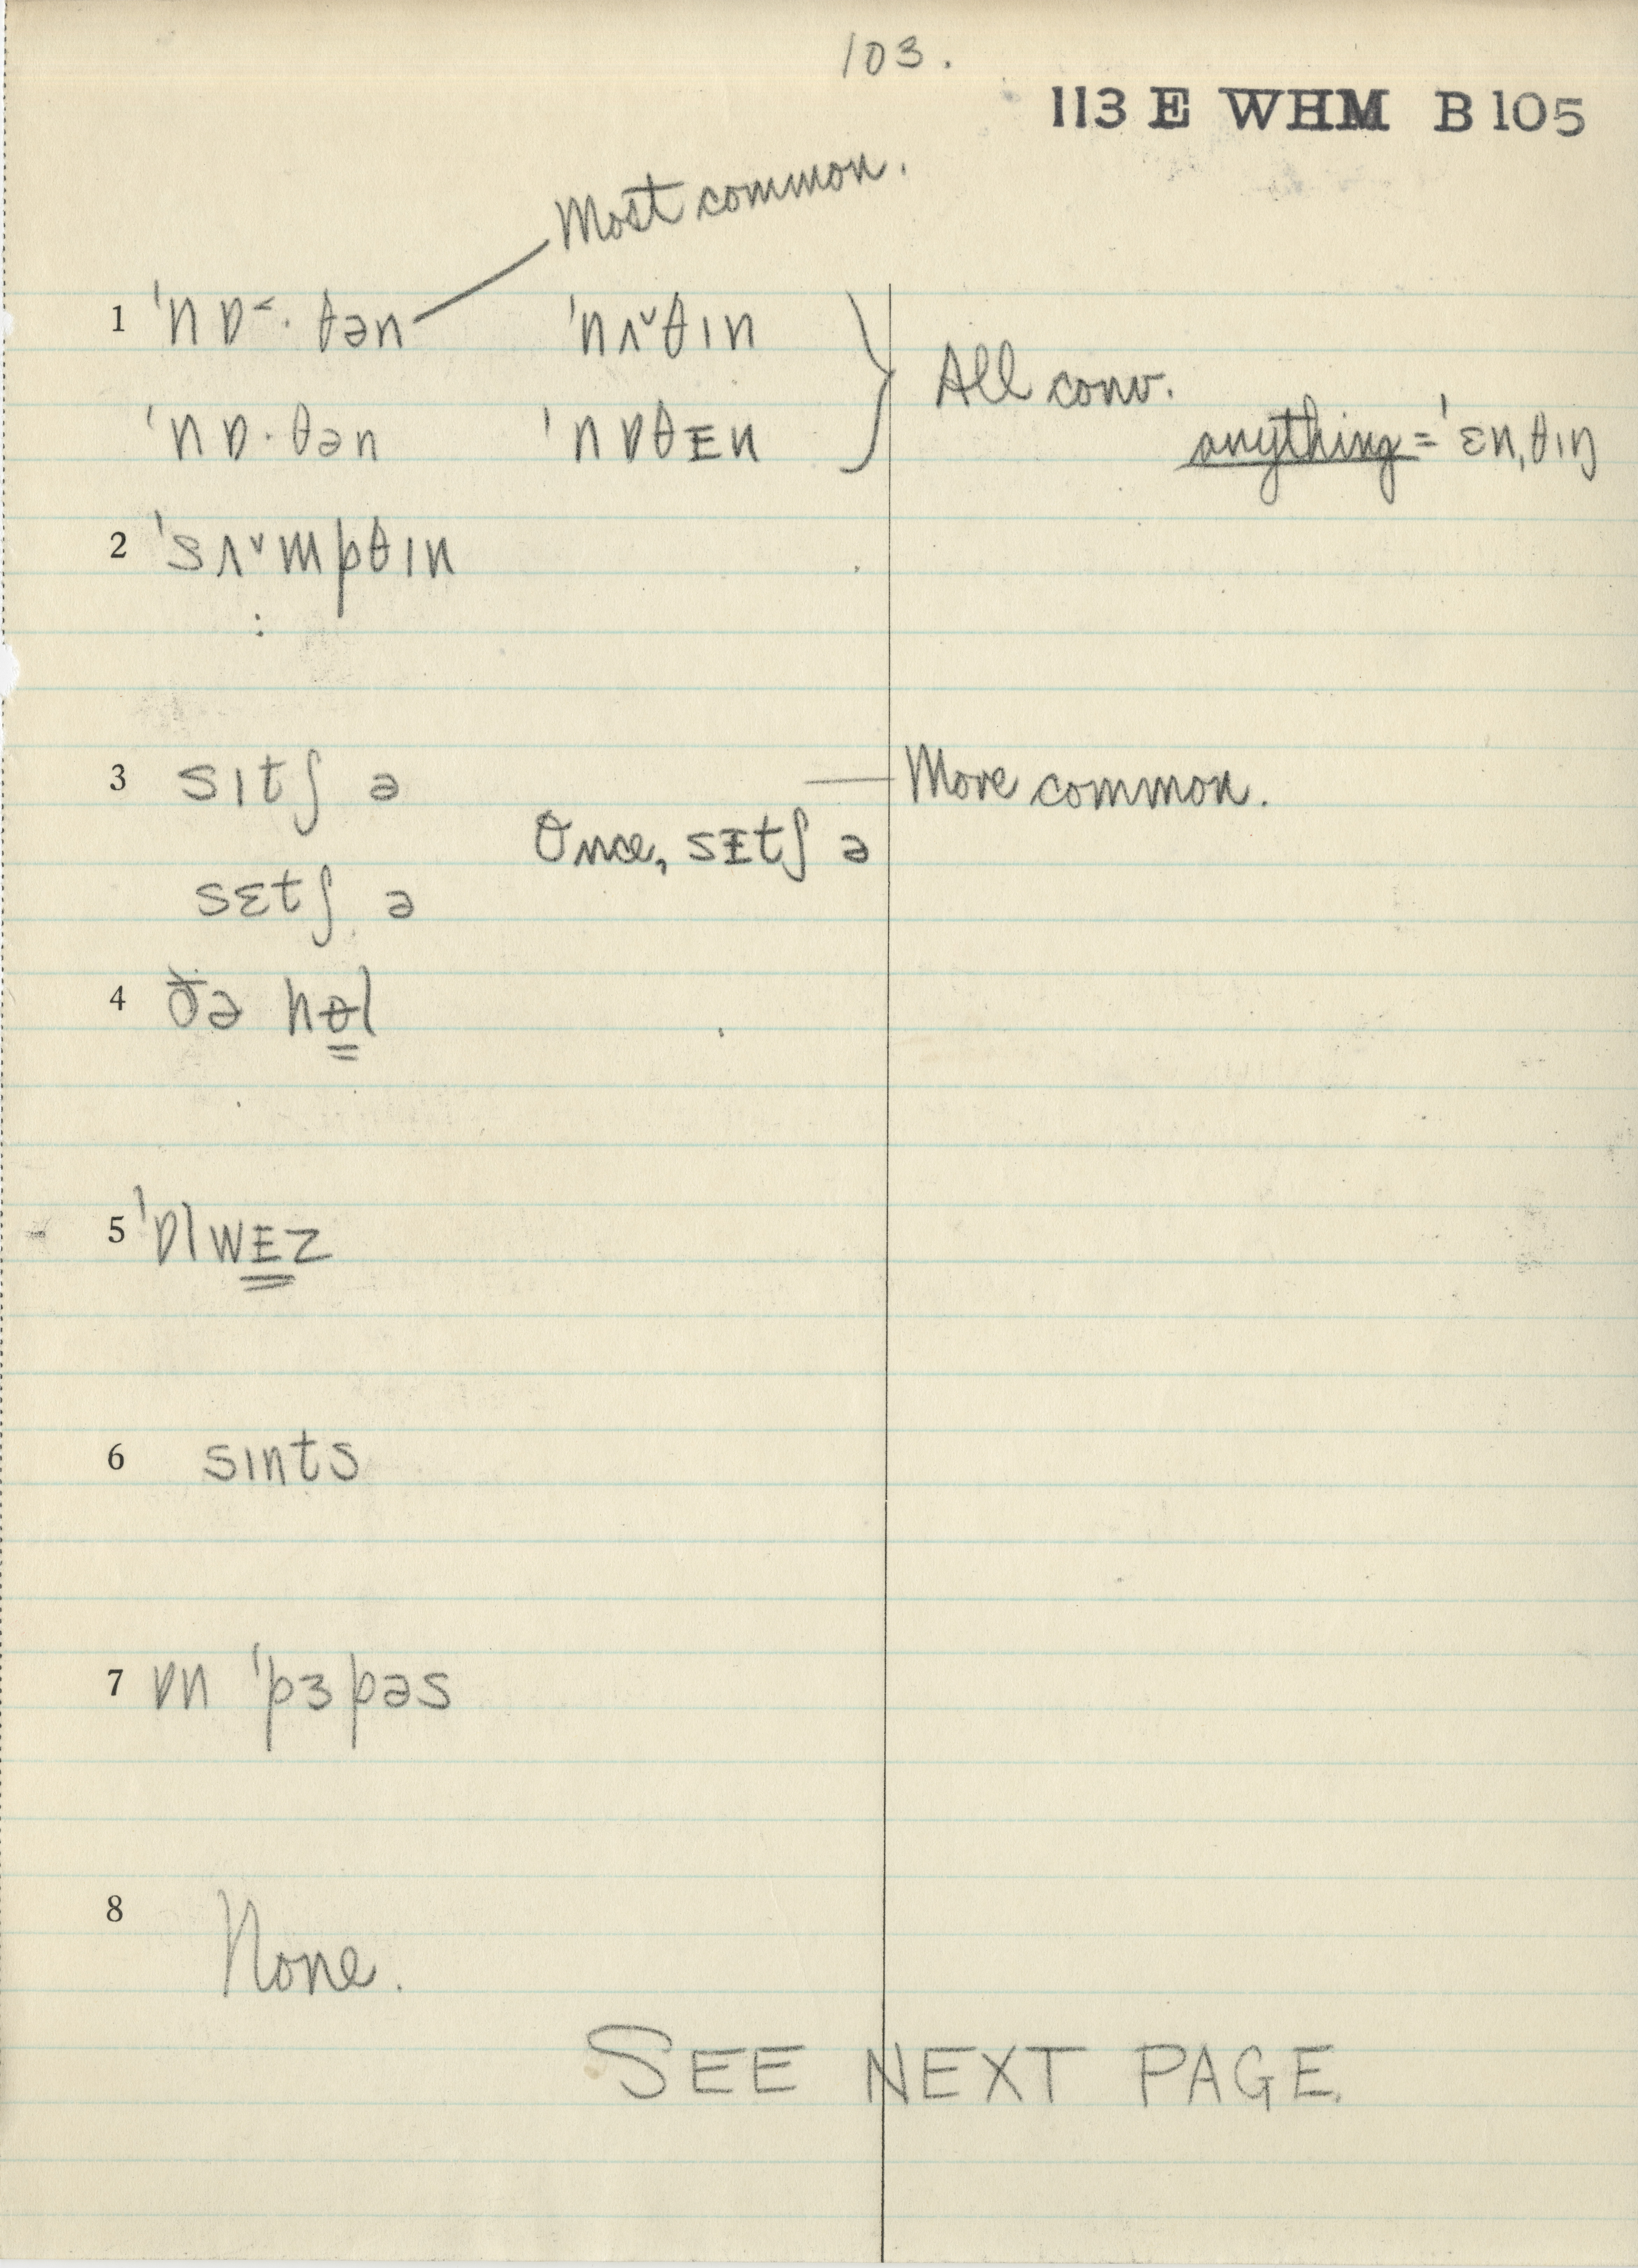 103.
113 E WHM B 105
Most common.
1 ˈnɒ˂·θən ˈnʌ˅θɪn
All conv.
ˈnɒ·θən ˈnɒθᴇn
anything = ˈɛnˌθɪŋ
2 ˈsʌ˅mpθɪn
:
3 sɪtʃ ə — More common.
Once, sᴇtʃ ə
sɛtʃ ə
4 ðə hɵl
5 ˈɒlwᴇz
6 sɪnts
7 ɒn ˈpɜpəs
8
None.
SEE NEXT PAGE.